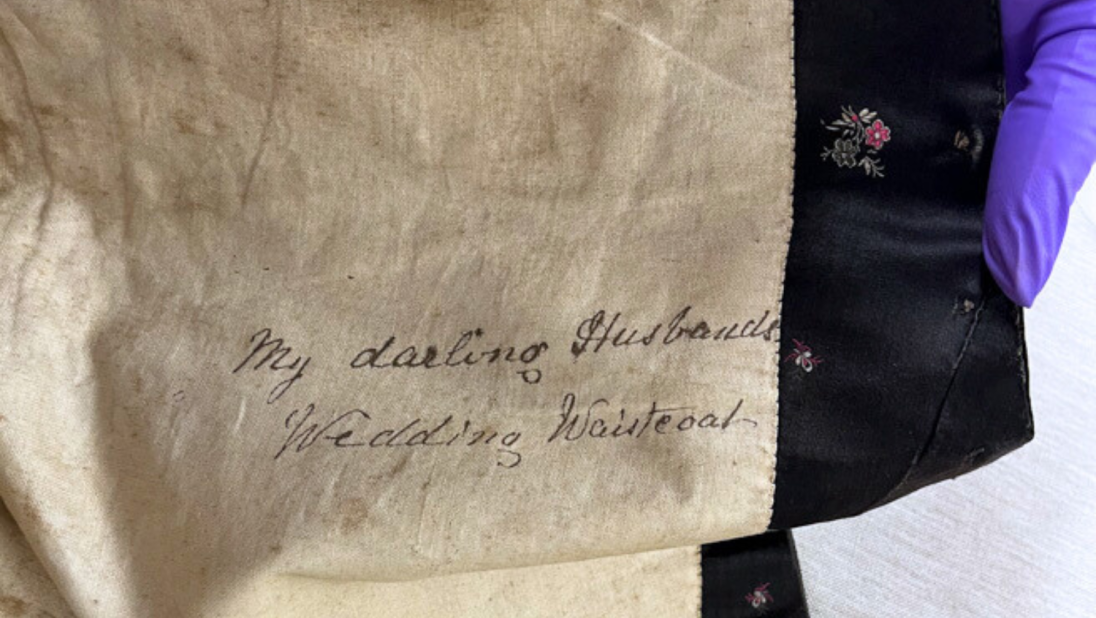 My darling Husbands
Wedding Waistcoat